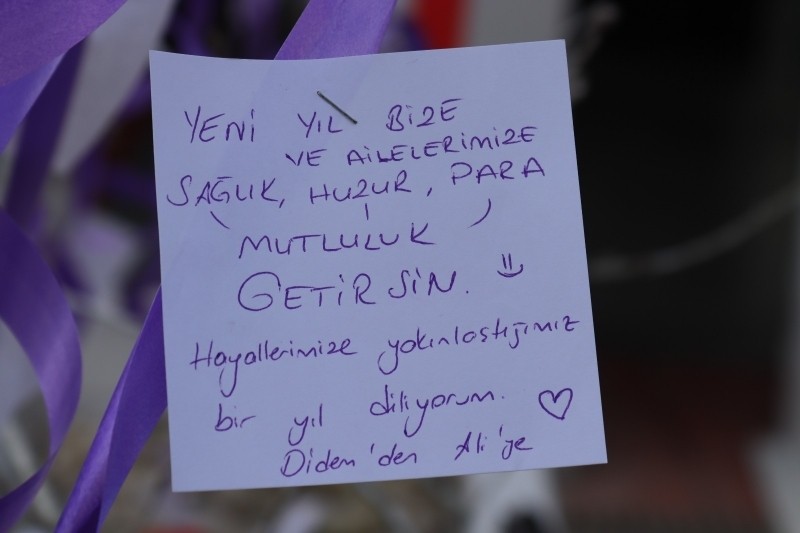 YENİ YIL BİZE
VE AİLELERİMİZE
SAĞLIK, HUZUR, PARA
MUTLULUK
GETİRSİN.
Hayallerimize yakınlaştığımız
bir yıl diliyorum.
Didem'den Ali'ye